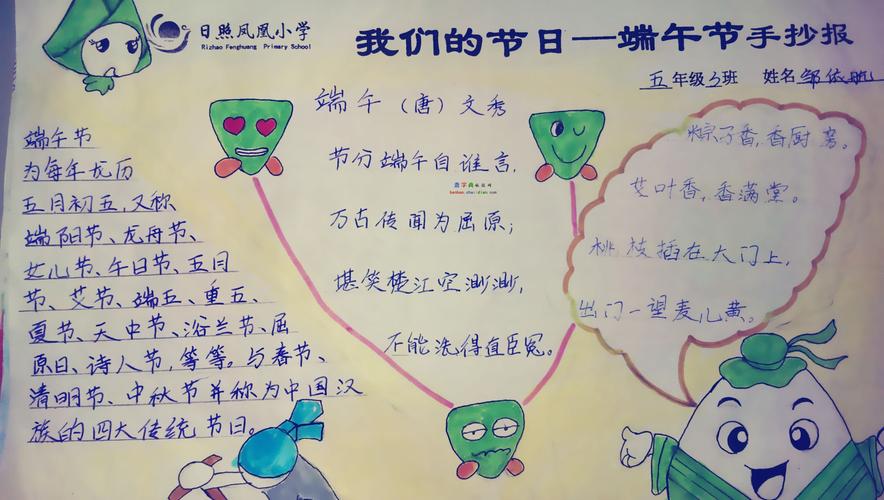 日照凤凰小学
Rizhao Fenghuang Primary School
我们的节日—端午节手抄报
五年级3班 姓名 邹依航
端午节
为每年龙历
五月初五,又称
端阳节、龙舟节、
女儿节、午日节、五月
节、艾节、端五、重五、
夏节、天中节、浴兰节、屈
原日、诗人节,等等。与春节、
清明节、中秋节并称为中国汉
族的四大传统节日。
端午(唐)文秀
节分端午自谁言,
万古传闻为屈原;
堪笑楚江空渺渺,
不能洗得直臣冤。
粽子香,香厨房。
艾叶香,香满堂。
桃枝插在大门上,
出门一望麦儿黄。